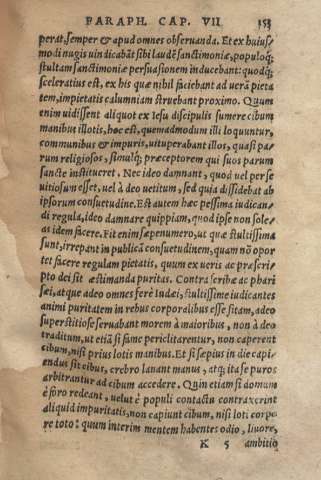 PARAPH. CAP. VII 153
perat, semper & apud omnes obseruanda. Et ex huius-
modi nugis uindicabāt sibi laudē sanctimoniæ, populoq́;
stultam sanctimoniæ persuasionem inducebant: quodq́;
sceleratius est, ex his quæ nihil faciebant ad uerā pieta
tem, impietatis calumniam struebant proximo. Quum
enim uidissent aliquot ex Iesu discipulis sumere cibum
manibus illotis, hoc est, quemadmodum illi loquuntur,
communibus & impuris, uituperabant illos, quasi pa-
rum religiosos, simulq́; præceptorem qui suos parum
sancte institueret. Nec ideo damnant, quod uel per se
uitiosum esset, uel à deo uetitum, sed quia dissidebat ab
ipsorum consuetudine. Est autem hæc pessima iudican-
di regula, ideo damnare quippiam, quod ipse non sole-
as idem facere. Fit enim sæpenumero, ut quæ stultissima
sunt, irrepant in publicā consuetudinem, quam nō opor
tet facere regulam pietatis, quum ex ueris ac præscri-
pto dei sit æstimanda puritas. Contra scribæ ac phari
sæi, atque adeo omnes ferè Iudæi, stultissime iudicantes
animi puritatem in rebus corporalibus esse sitam, adeo
superstitiose seruabant morem à maioribus, non à deo
traditum, ut etiā si fame periclitarentur, non caperent
cibum, nisi prius lotis manibus. Et si sæpius in die capi-
endus sit cibus, crebro lauant manus, atq; ita se puros
arbitrantur ad cibum accedere. Quin etiam si domum
è foro redeant, uelut è populi contactu contraxerint
aliquid impuritatis, non capiunt cibum, nisi loti corpo
re toto: quum interim mentem habentes odio, liuore,
K 5 ambitio